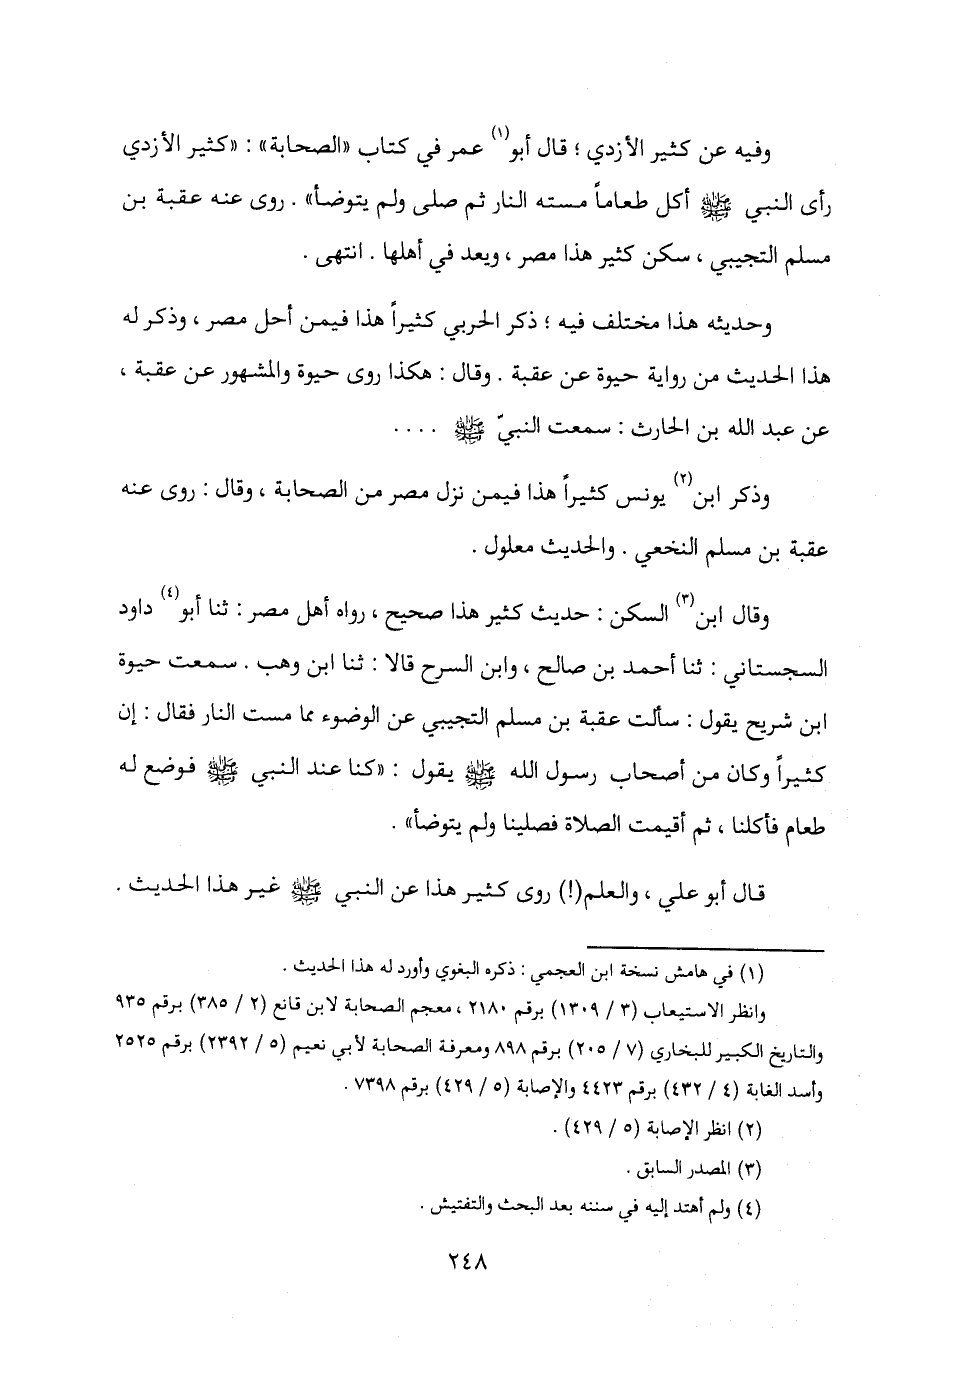 وفيه عن كثير الأزدي ؛ قال أبو(١) عمر في كتاب «الصحابة» : «كثير الأزدي
رأى النبي ﷺ أكل طعاماً مسته النار ثم صلى ولم يتوضأ» . روى عنه عقبة بن
مسلم التجيبي ، سكن كثير هذا مصر ، ويعد في أهلها . انتهى .
وحديثه هذا مختلف فيه ؛ ذكر الحربي كثيراً هذا فيمن أحل مصر ، وذكر له
هذا الحديث من رواية حيوة عن عقبة . وقال : هكذا روى حيوة والمشهور عن عقبة ،
عن عبد الله بن الحارث : سمعت النبيّ ﷺ ....
وذكر ابن(٢) يونس كثيراً هذا فيمن نزل مصر من الصحابة ، وقال : روى عنه
عقبة بن مسلم النخعي . والحديث معلول .
وقال ابن(٣) السكن : حديث كثير هذا صحيح ، رواه أهل مصر : ثنا أبو(٤) داود
السجستاني : ثنا أحمد بن صالح ، وابن السرح قالا : ثنا ابن وهب . سمعت حيوة
ابن شريح يقول : سألت عقبة بن مسلم التجيبي عن الوضوء مما مست النار فقال : إن
كثيراً وكان من أصحاب رسول الله ﷺ يقول : «كنا عند النبي ﷺ فوضع له
طعام فأكلنا ، ثم أقيمت الصلاة فصلينا ولم يتوضأ» .
قال أبو علي ، والعلم(!) روى كثير هذا عن النبي ﷺ غير هذا الحديث .
(١) في هامش نسخة ابن العجمي : ذكره البغوي وأورد له هذا الحديث .
وانظر الاستيعاب (٣ / ١٣٠٩) برقم ٢١٨٠ ، معجم الصحابة لابن قانع (٢ / ٣٨٥) برقم ٩٣٥
والتاريخ الكبير للبخاري (٧ / ٢٠٥) برقم ٨٩٨ ومعرفة الصحابة لأبي نعيم (٥ / ٢٣٩٢) برقم ٢٥٢٥
وأسد الغابة (٤ / ٤٣٢) برقم ٤٤٢٣ والإصابة (٥ / ٤٢٩) برقم ٧٣٩٨ .
(٢) انظر الإصابة (٥ / ٤٢٩) .
(٣) المصدر السابق .
(٤) ولم أهتد إليه في سننه بعد البحث والتفتيش .
٢٤٨